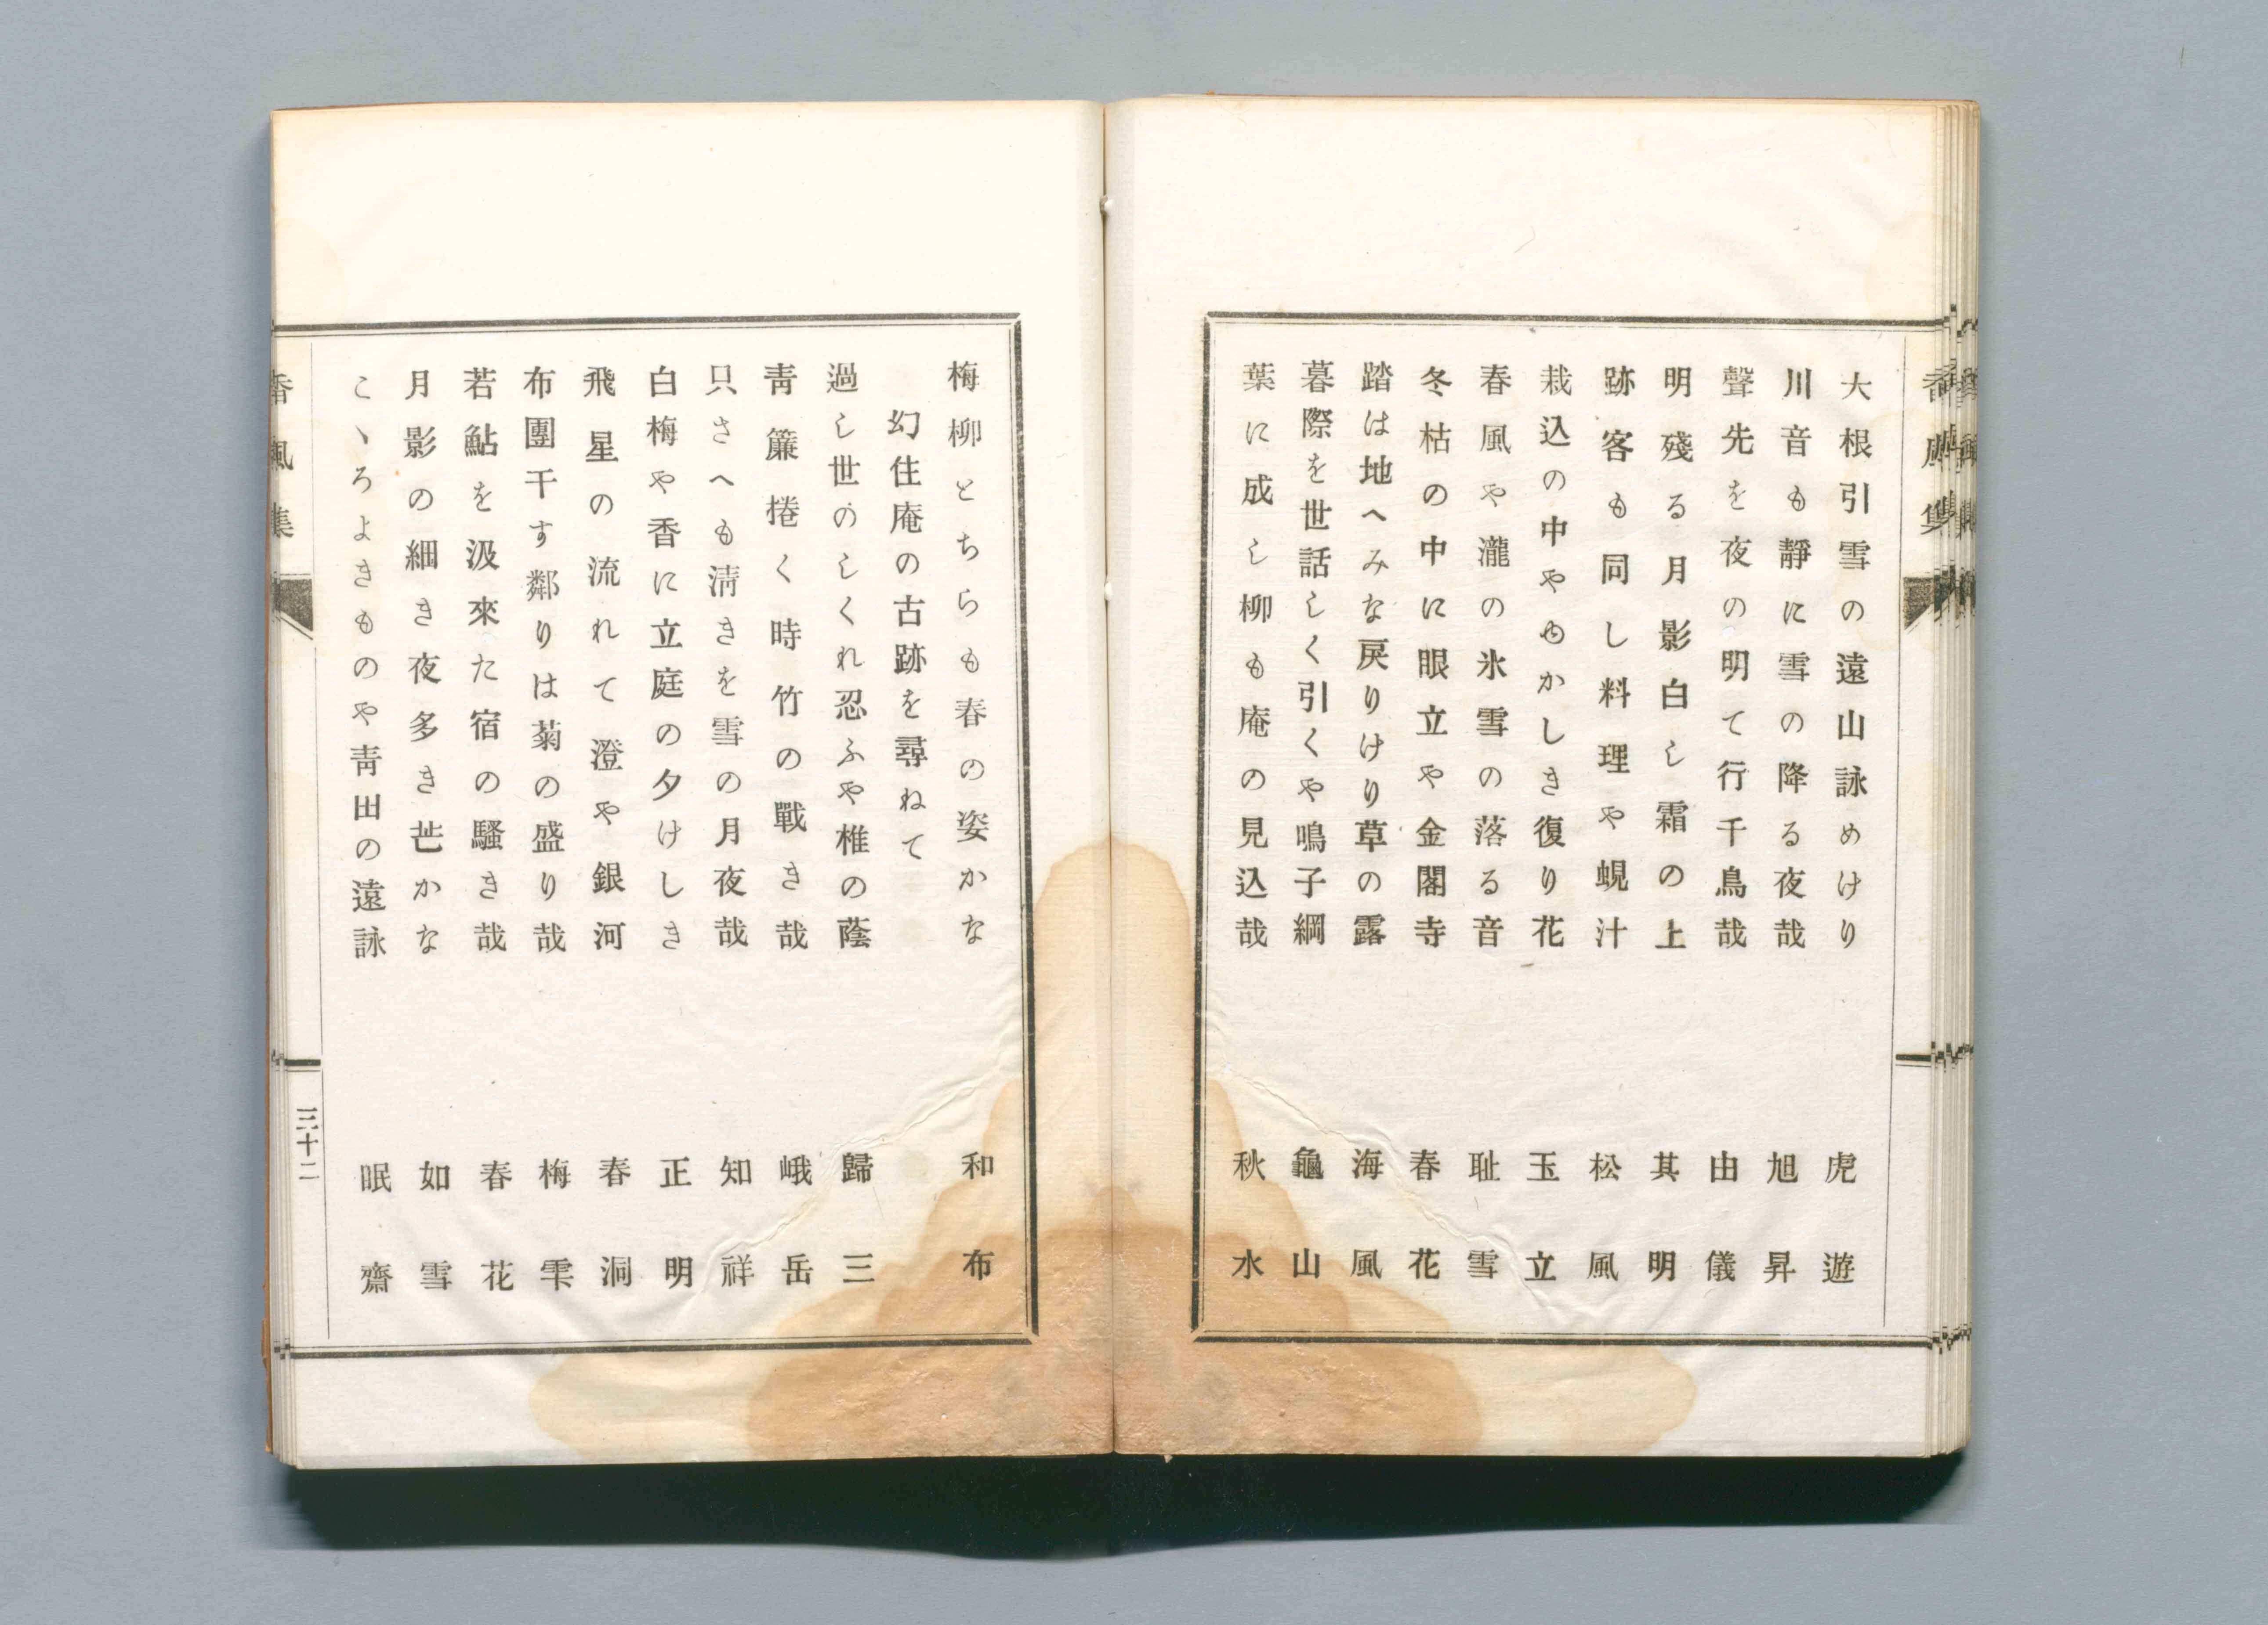 大根引雪の遠山詠めけり　虎遊
川音も靜に雪の降る夜哉　旭昇
聲先を夜の明て行千鳥哉　由儀
明殘る月影白し霜の上　其明
跡客も同し料理や蜆汁　松風
栽込の中やゆかしき復り花　玉立
春風や瀧の氷雪の落る音　耻雪
冬枯の中に眼立や金閣寺　春花
踏は地へみな戻りけり草の露　海風
暮際を世話しく引くや鳴子綱　龜山
葉に成し柳も庵の見込哉　秋水
梅柳とちらも春の姿かな　和布
幻住庵の古跡を尋ねて
過し世のしくれ忍ふや椎の蔭　歸三
靑簾捲く時竹の戰き哉　峨岳
只さへも淸きを雪の月夜哉　知祥
白梅や香に立庭の夕けしき　正明
飛星の流れて澄や銀河　春洞
布團干す鄰りは菊の盛り哉　梅雫
若鮎を汲來た宿の騷き哉　春花
月影の細き夜多き芒かな　如雪
こゝろよきものや靑田の遠詠　眠齋
香風集
三十二